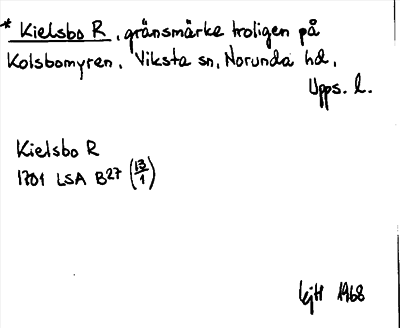 * Kielsbo R, gränsmärke troligen på
Kolsbomyren, Viksta sn, Norunda hd,
Upps. l.
Kielsbo R
1701 LSA B27 (13/1)
KjH 1968